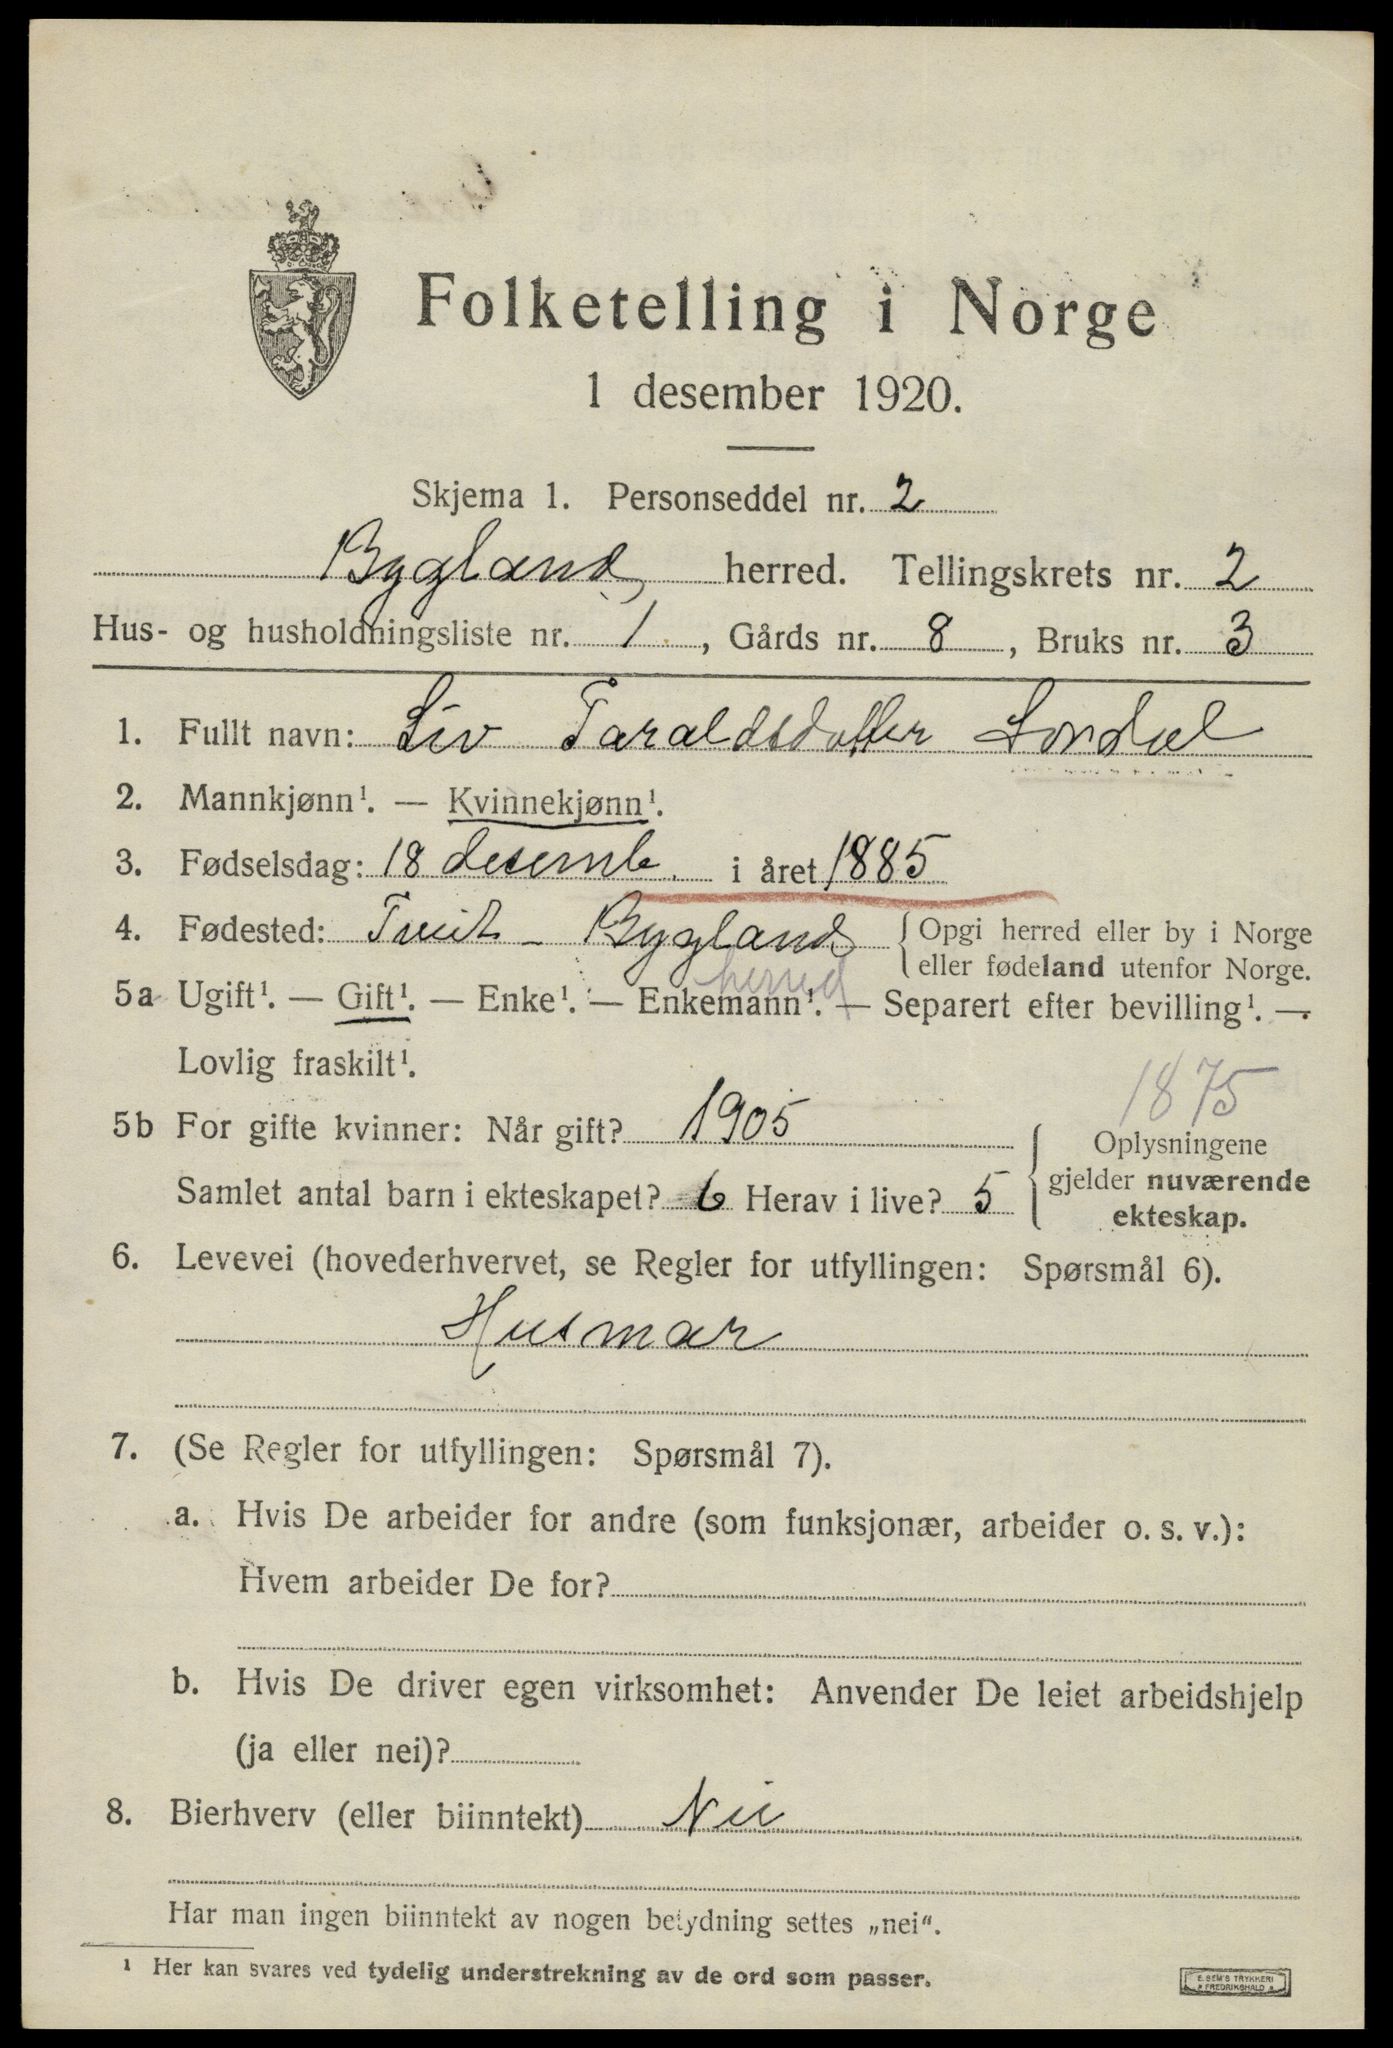 Folketelling i Norge
1 desember 1920.
Skjema 1. Personseddel nr. 2
Bygland herred. Tellingskrets nr. 2
Hus- og husholdningsliste nr. 1, Gårds nr. 8, Bruks nr. 3
1. Fullt navn: Liv Taraldsdotter Lordal
2. Mannkjønn¹. — Kvinnekjønn¹.
3. Fødselsdag: 18 desemb. i året 1885
4. Fødested: Tveit - Bygland { Opgi herred eller by i Norge
eller fødeland utenfor Norge.
herred
5a Ugift¹. — Gift¹. — Enke¹. — Enkemann¹. — Separert efter bevilling¹. —
Lovlig fraskilt¹.
1875
5b For gifte kvinner: Når gift? 1905
Samlet antal barn i ekteskapet? 6 Herav i live? 5
Oplysningene
gjelder nuværende
ekteskap.
6. Levevei (hovederhvervet, se Regler for utfyllingen: Spørsmål 6).
Husmor
7. (Se Regler for utfyllingen: Spørsmål 7).
a. Hvis De arbeider for andre (som funksjonær, arbeider o. s. v.):
Hvem arbeider De for?
b. Hvis De driver egen virksomhet: Anvender De leiet arbeidshjelp
(ja eller nei)?
8. Bierhverv (eller biinntekt) Nei
Har man ingen biinntekt av nogen betydning settes „nei“.
¹ Her kan svares ved tydelig understrekning av de ord som passer.
E. SEM'S TRYKKERI
FREDRIKSHALD